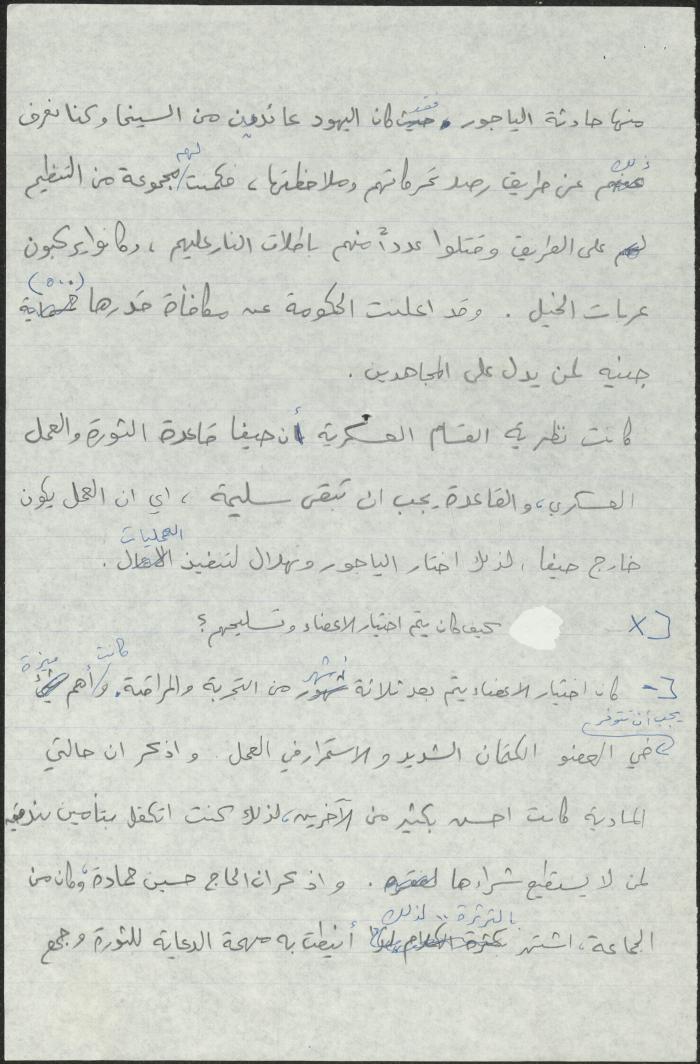 منها حادثة الياجور. فقد كان اليهود عائدين من السينما وكنا نعرف
ذلك عن طريق رصد تحركاتهم وملاحظتها، فكمنت لهم مجموعة من التنظيم
على الطريق وقتلوا عدداً منهم باطلاق النار عليهم، وكانوا يركبون
عربات الخيل. وقد اعلنت الحكومة عن مكافأة قدرها خمسماية (٥٠٠)
جنيه لمن يدل على المجاهدين.
كانت نظرية القسام العسكرية أن حيفا قاعدة الثورة والعمل
العسكري، والقاعدة يجب ان تبقى سليمة، اي ان العمل يكون
خارج حيفا، لذلك اختار الياجور ونهلال لتنفيذ العمليات.
كيف كان يتم اختيار الاعضاء وتسليحهم؟
- كان اختيار الاعضاء يتم بعد ثلاثة أشهر من التجربة والمراقبة. وكانت أهم ميزة
يجب أن تتوفر في العضو الكتمان الشديد والاستمرار في العمل. واذكر ان حالتي
المادية كانت احسن بكثير من الآخرين، لذلك كنت اتكفل بتأمين بندقية
لمن لا يستطيع شراءها. واذكر ان الحاج حسين حمادة، وكان من
الجماعة، اشتهر بالثرثرة لذلك أنيطت به مهمة الدعاية للثورة وجمع